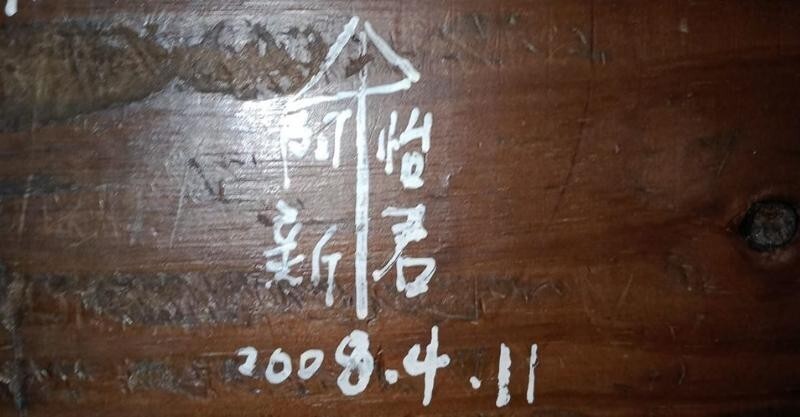 阿 怡
新 君
2008.4.11